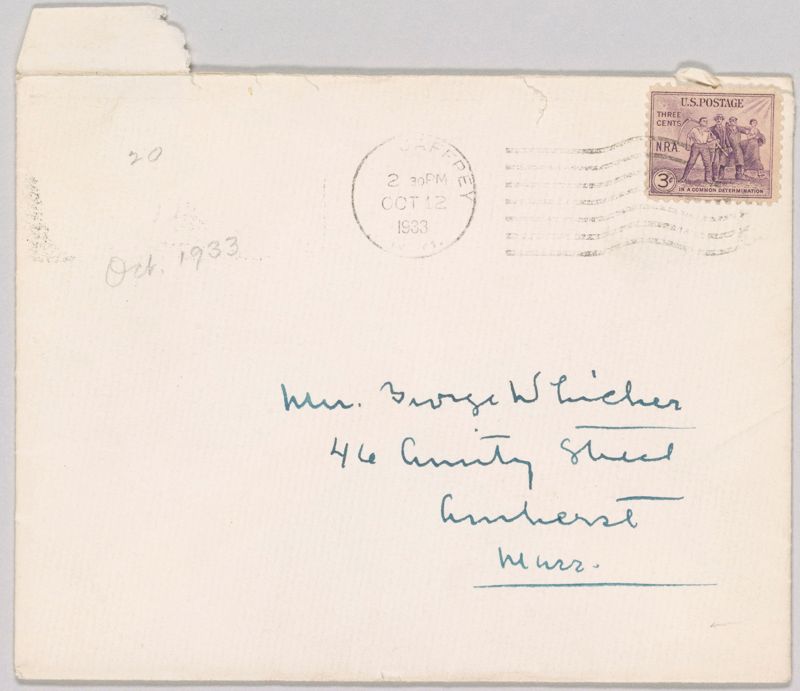 U.S.POSTAGE
THREE
CENTS
N.R.A.
3¢
IN A COMMON DETERMINATION
JAFFREY
2 30PM
OCT 12
1933
20
Oct. 1933
George Whicher
46 Amity Street
Amherst
Mass.